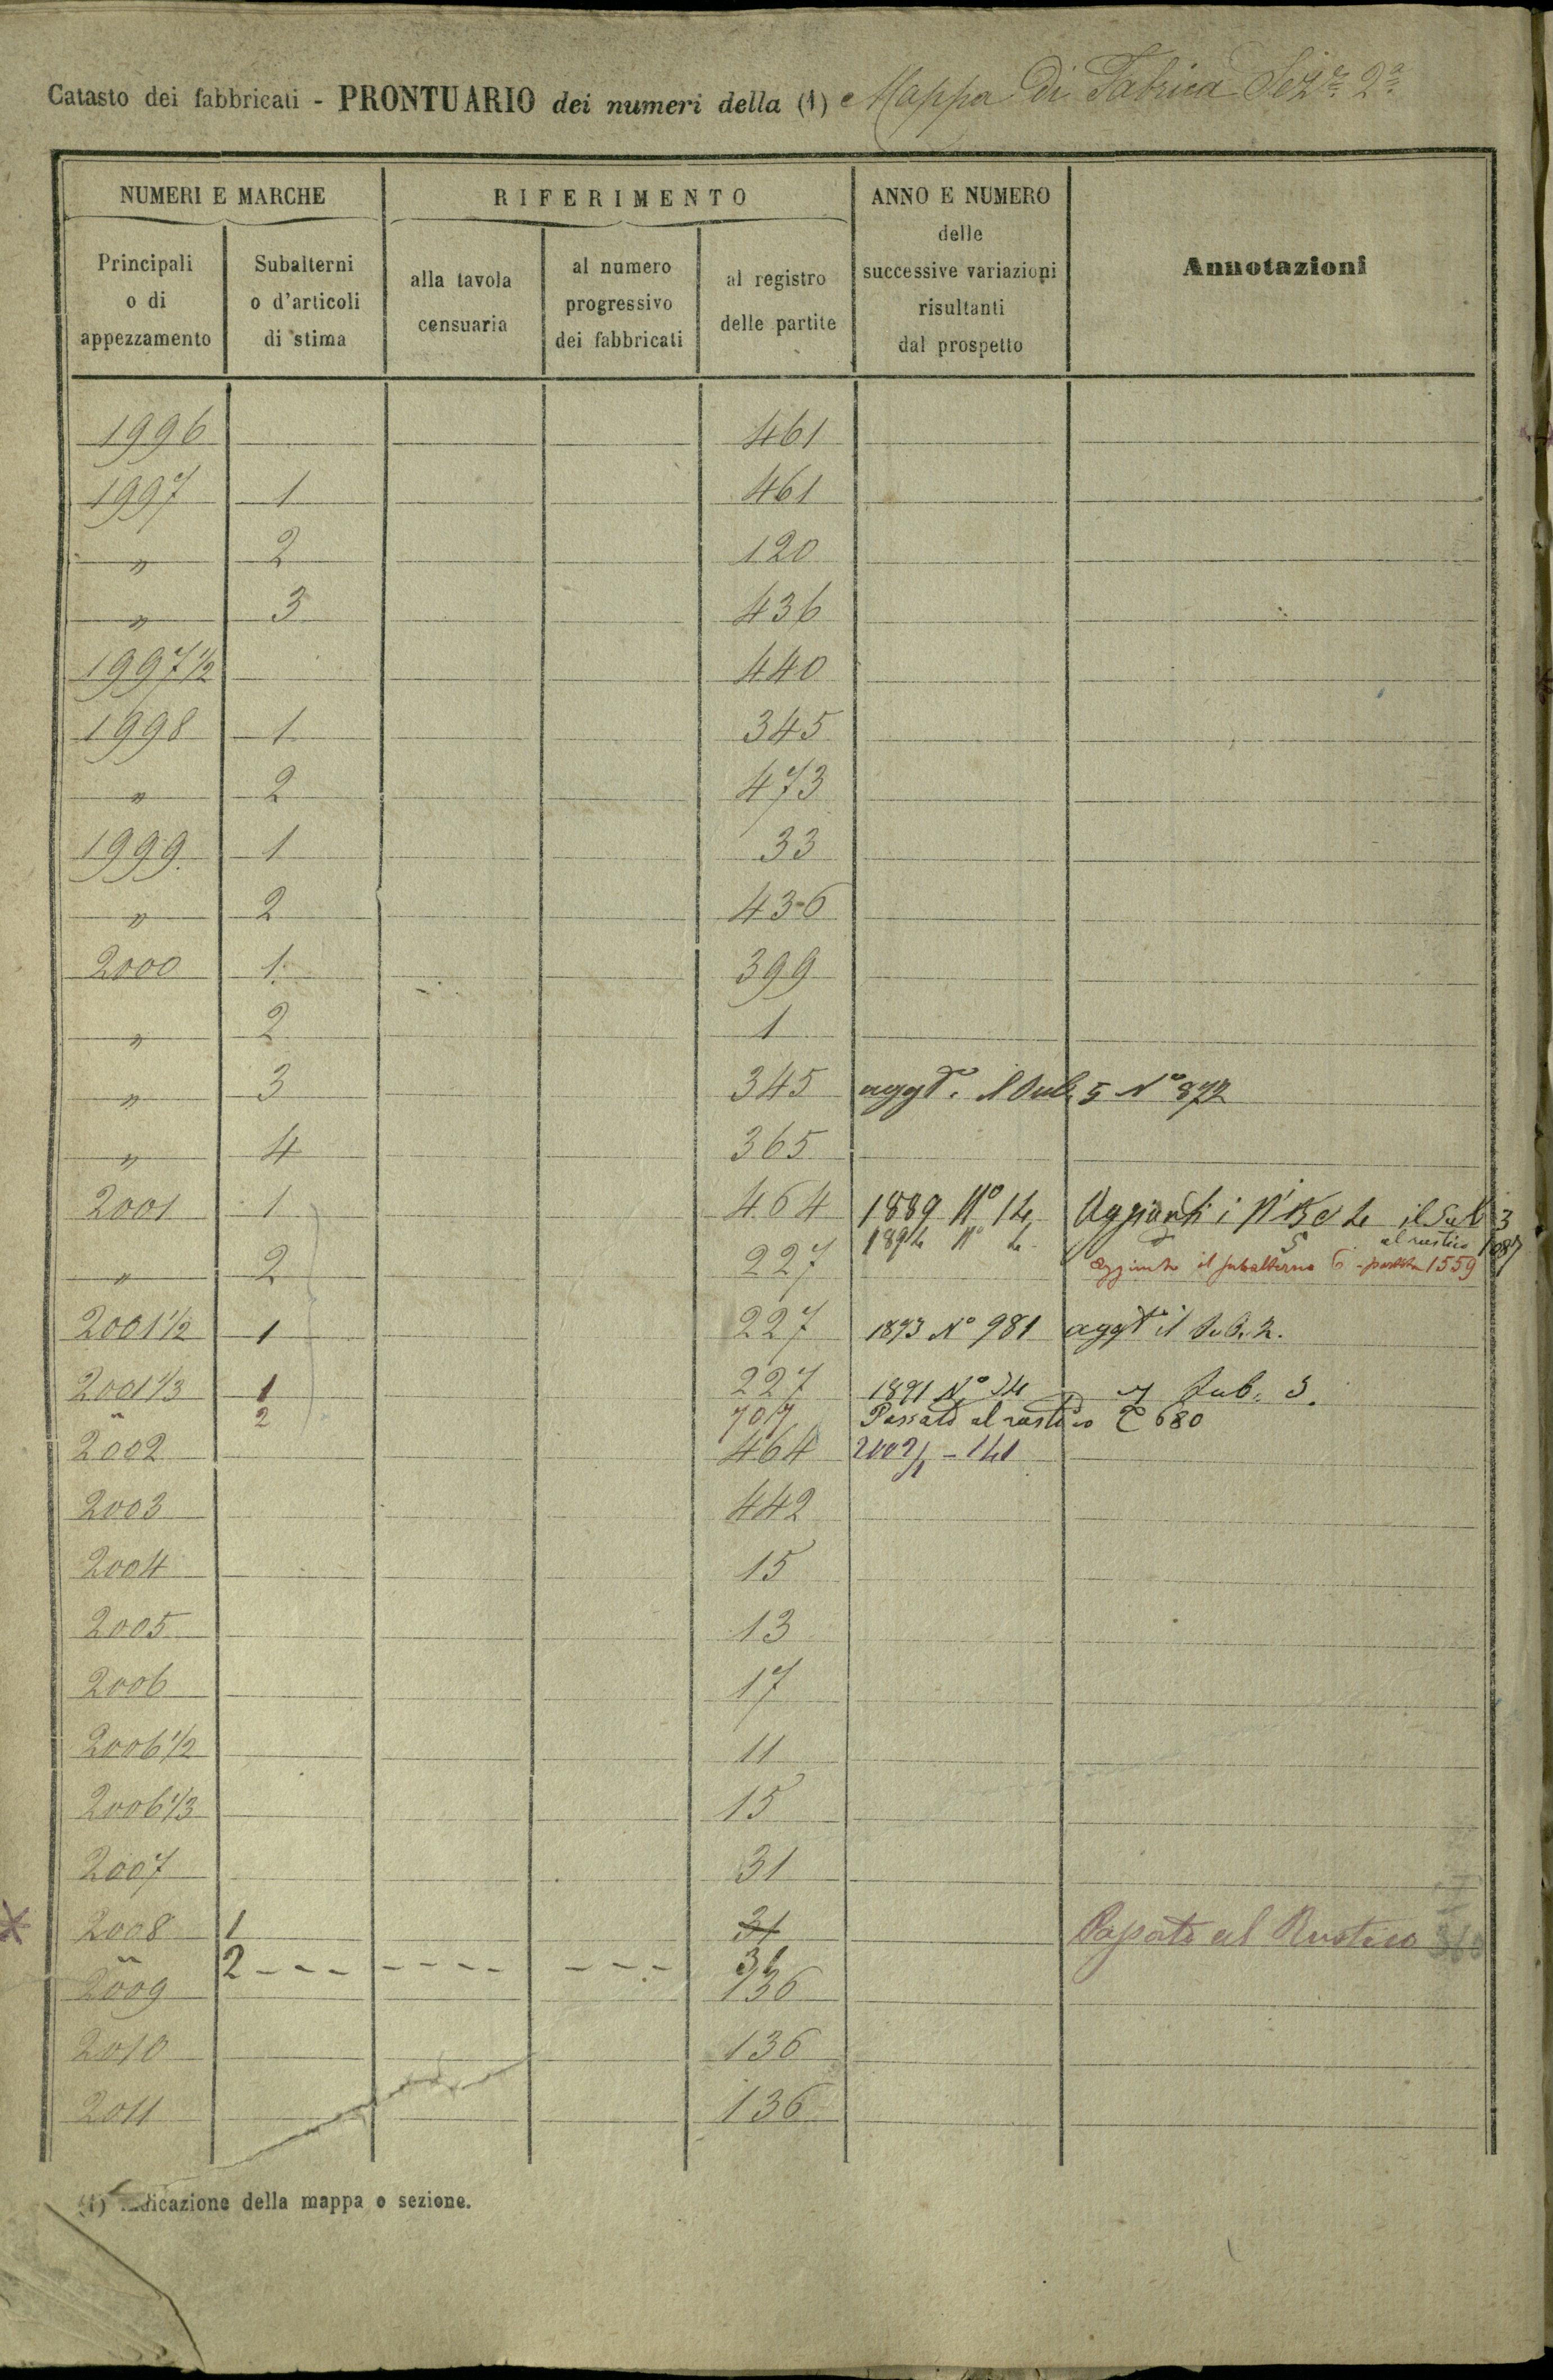 Catasto dei fabbricati - PRONTUARIO dei numeri della (1) Mappa Di Fabrica Sez.e 2a
NUMERI E MARCHE RIFERIMENTO ANNO E NUMERO delle successive variazioni risultanti dal prospetto Annotazioni
Principali o di appezzamento Subalterni o d'articoli di stima alla tavola censuaria al numero progressivo dei fabbricati al registro delle partite
1996 461
1997 1 461
" 2 120
" 3 436
1997 1/2 440
1998 1 345
" 2 473
1999 1 33
" 2 436
2000 1 399
" 2 1
" 3 345 aggto. il Sub. 5 No 872
" 4 365
2001 1 464 1889 No 14 Aggiunti i 4 il Sub 3
1894 No 4 5 al rustico 1087
" 2 227 Aggiunto il subalterno 6 - partita 1559
2001 1/2 1 227 1893 No 981 aggto il Sub. 2.
2001 1/3 1 227 1891 No 34 " Sub. 3.
" 2 707 Passato al rustico 680
2002 464 2002/1 - 141
2003 442
2004 15
2005 13
2006 17
2006 1/2 11
2006 1/3 15
2007 31
2008 1 31 Passato al Rustico
" 2 - - - - - - - - - - 31
2009 136
2010 136
2011 136
(1) Indicazione della mappa o sezione.